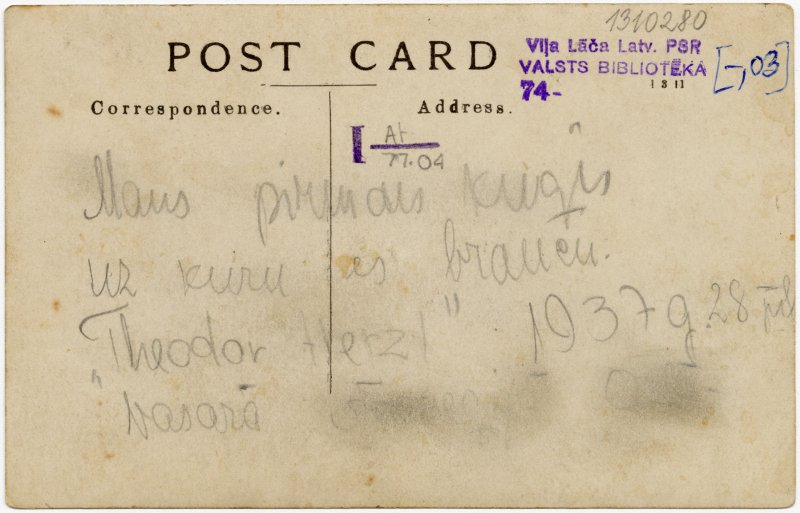 1310280
POST CARD
Viļa Lāča Latv. PSR
VALSTS BIBLIOTĒKA
74-
1311
[-,03]
Correspondence.
Address.
I At
77.04
Mans pirmais kuģis
uz kuru es braucu.
"Theodor Herzl" 1937 g. 28
vasarā